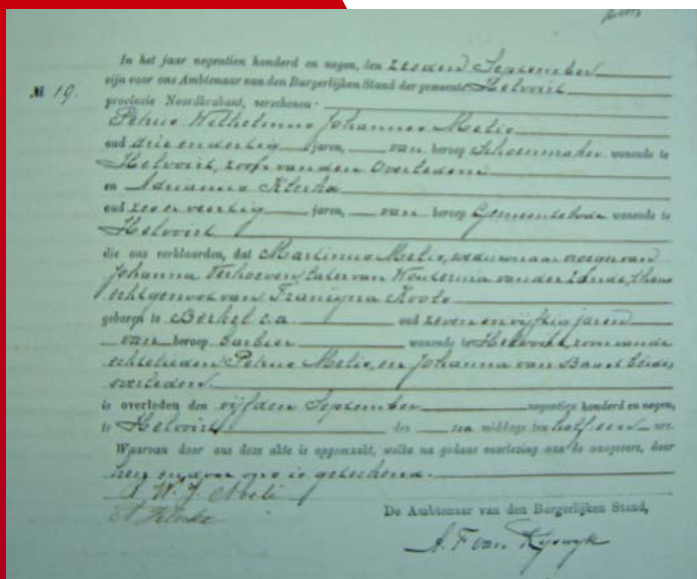 In het jaar negentien honderd en negen, den zesden September
zijn voor ons Ambtenaar van den Burgerlijken Stand der gemeente Helvoirt
№ 19.
provincie Noordbrabant, verschenen
Petrus Wilhelmus Johannes Melis
oud drie en dertig jaren, van beroep Schoenmaker wonende te
Helvoirt, zoon van den Overledene
en Adrianus Klerkx
oud zes en veertig jaren, van beroep Gemeentebode wonende te
Helvoirt
die ons verklaarden, dat Martinus Melis, weduwnaar vroeger van
Johanna Verhoeven, later van Wouterina van der Zande, thans
echtgenoot van Francyna Kroots
geboren te Berkel c.a. oud zeven en vijftig jaren
van beroep barbier wonende te Helvoirt, zoon van de
echtelieden Petrus Melis, en Johanna van Baast beiden
overleden
is overleden den vijfden September negentien honderd en negen,
te Helvoirt des na middags ten half een ure.
Waarvan door ons deze akte is opgemaakt, welke na gedane voorlezing aan de aangevers, door
hen en door ons is geteekend.
P. W. J. Melis
A Klerkx
De Ambtenaar van den Burgerlijken Stand,
A. F van Rijswijk